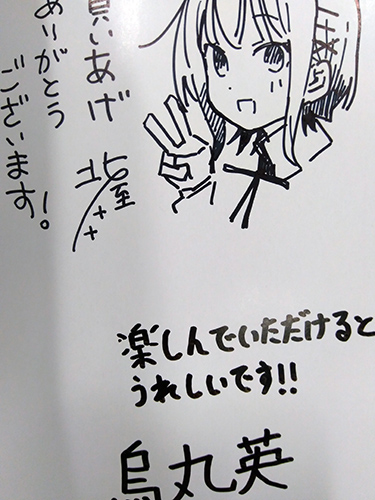 買いあげ
ありがとう
ございます!
楽しんでいただけると
うれしいです!!
烏丸英